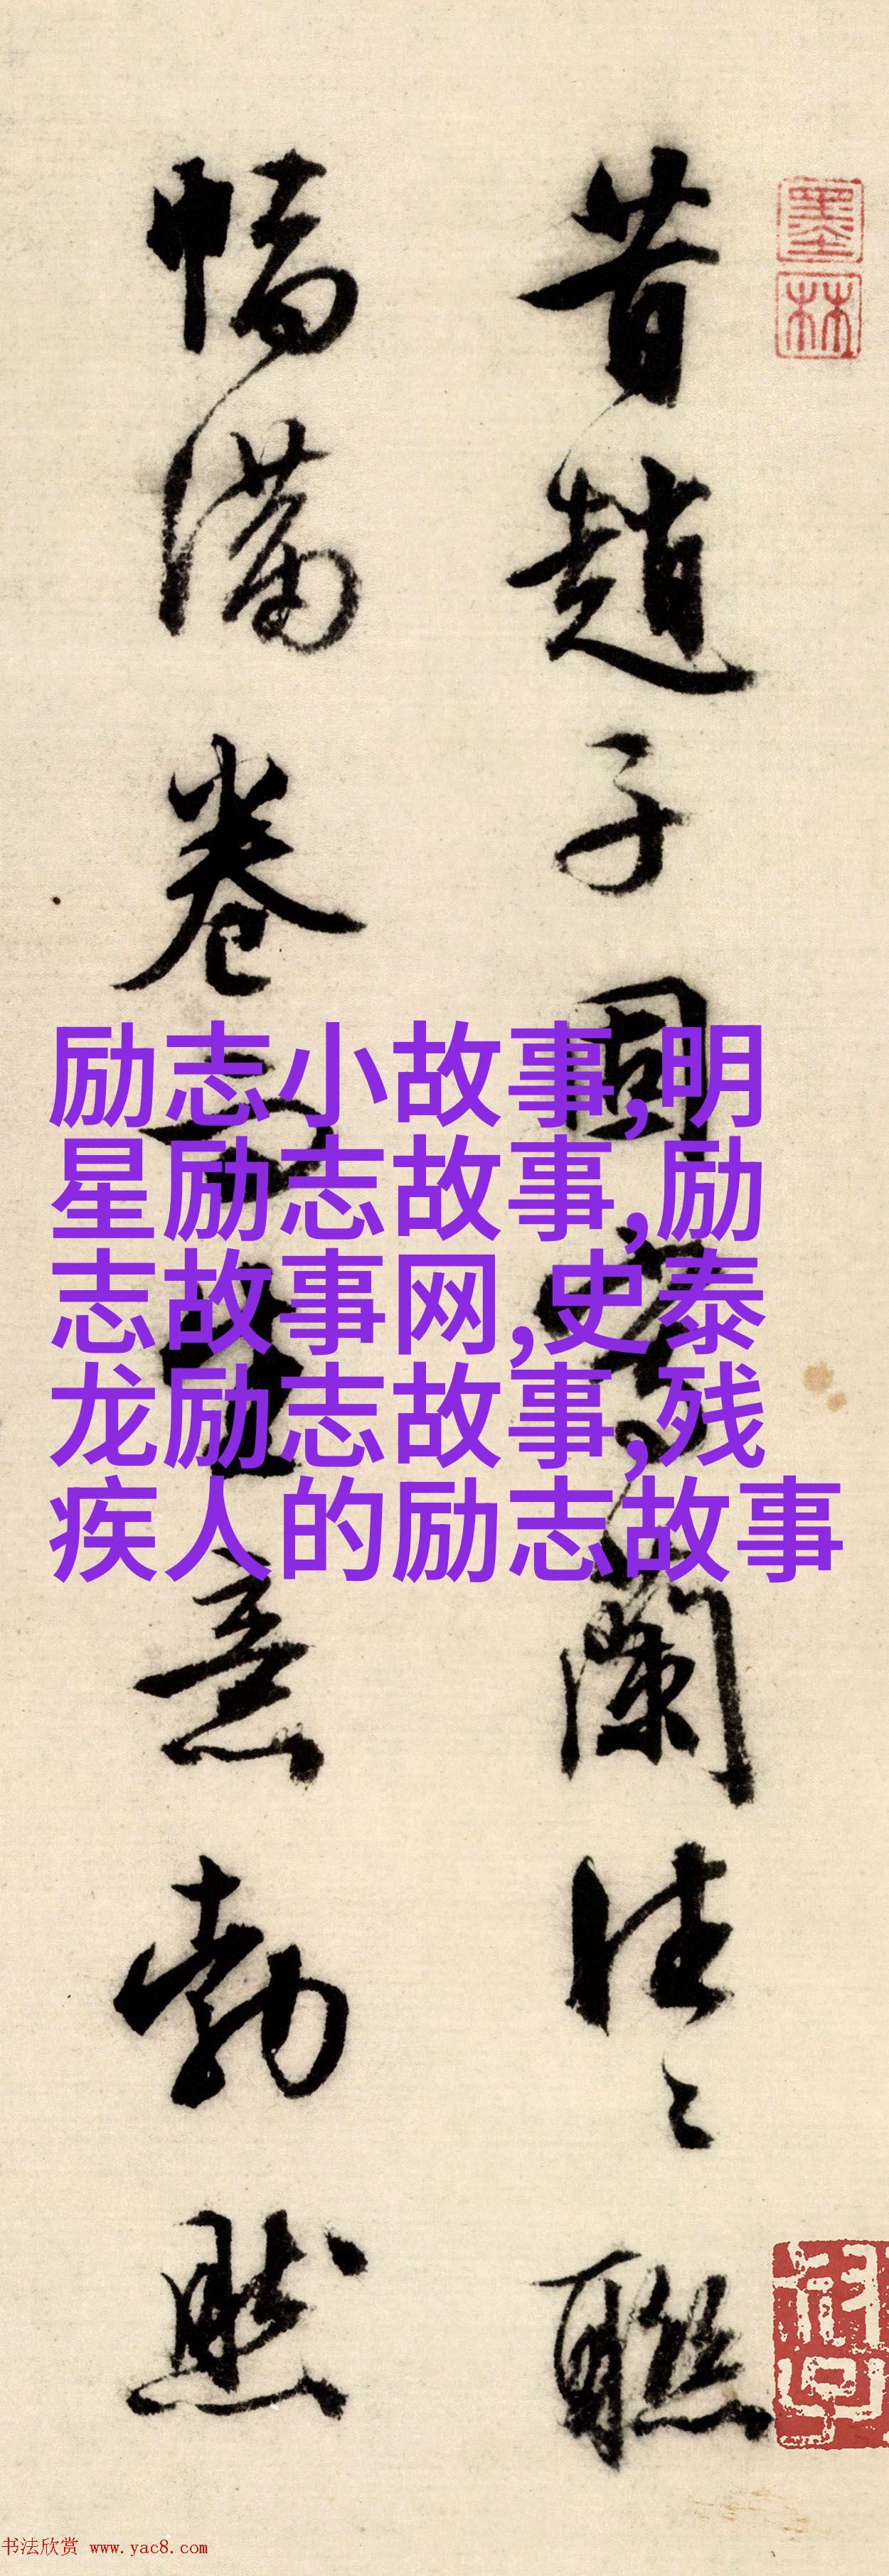 昔趙子固寫蘭往〻聯
幅滿卷而生意勃然
墨林
励志小故事,明
星励志故事,励
志故事网,史泰
龙励志故事,残
疾人的励志故事
书法欣赏 www.yac8.com